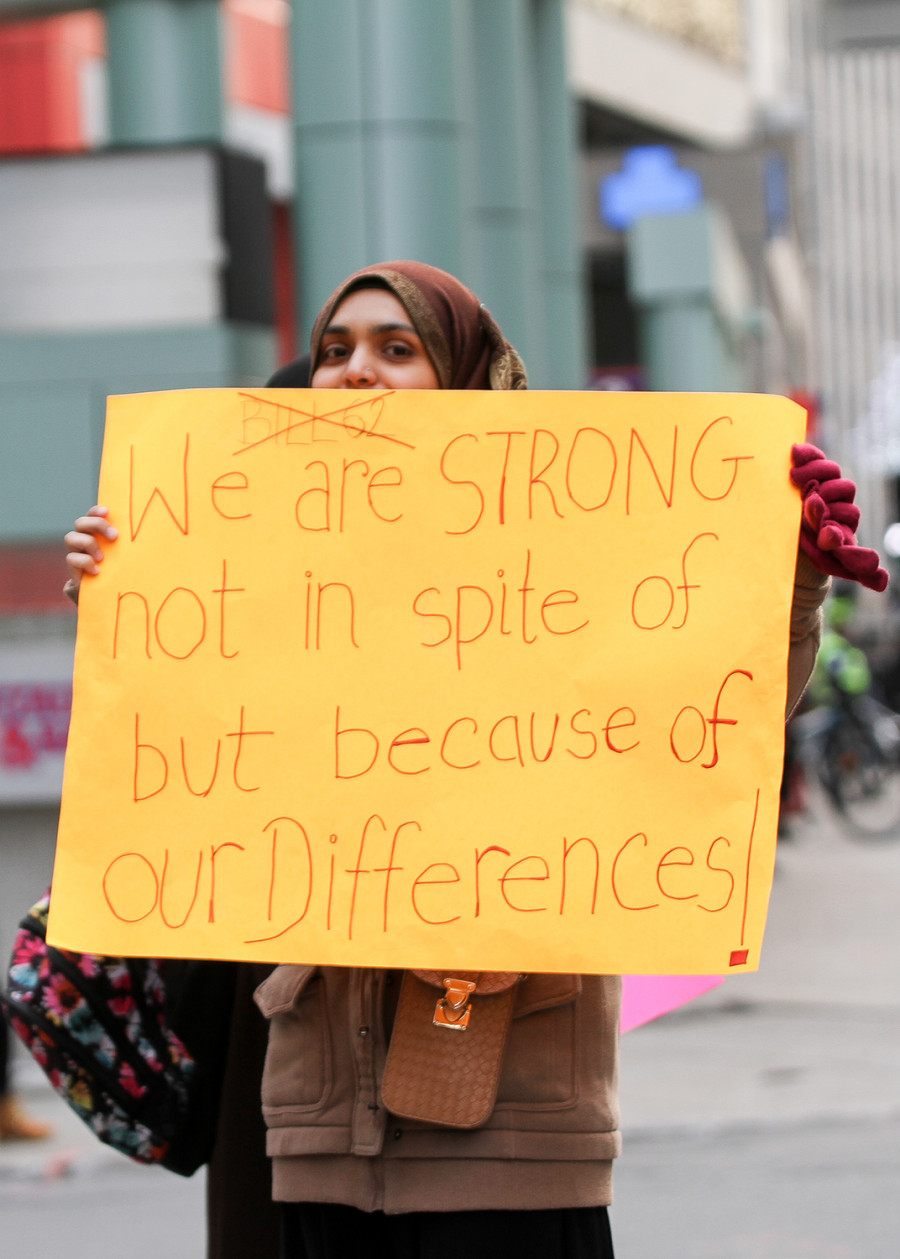 BILL 62
We are STRONG
not in spite of
but because of
our Differences!